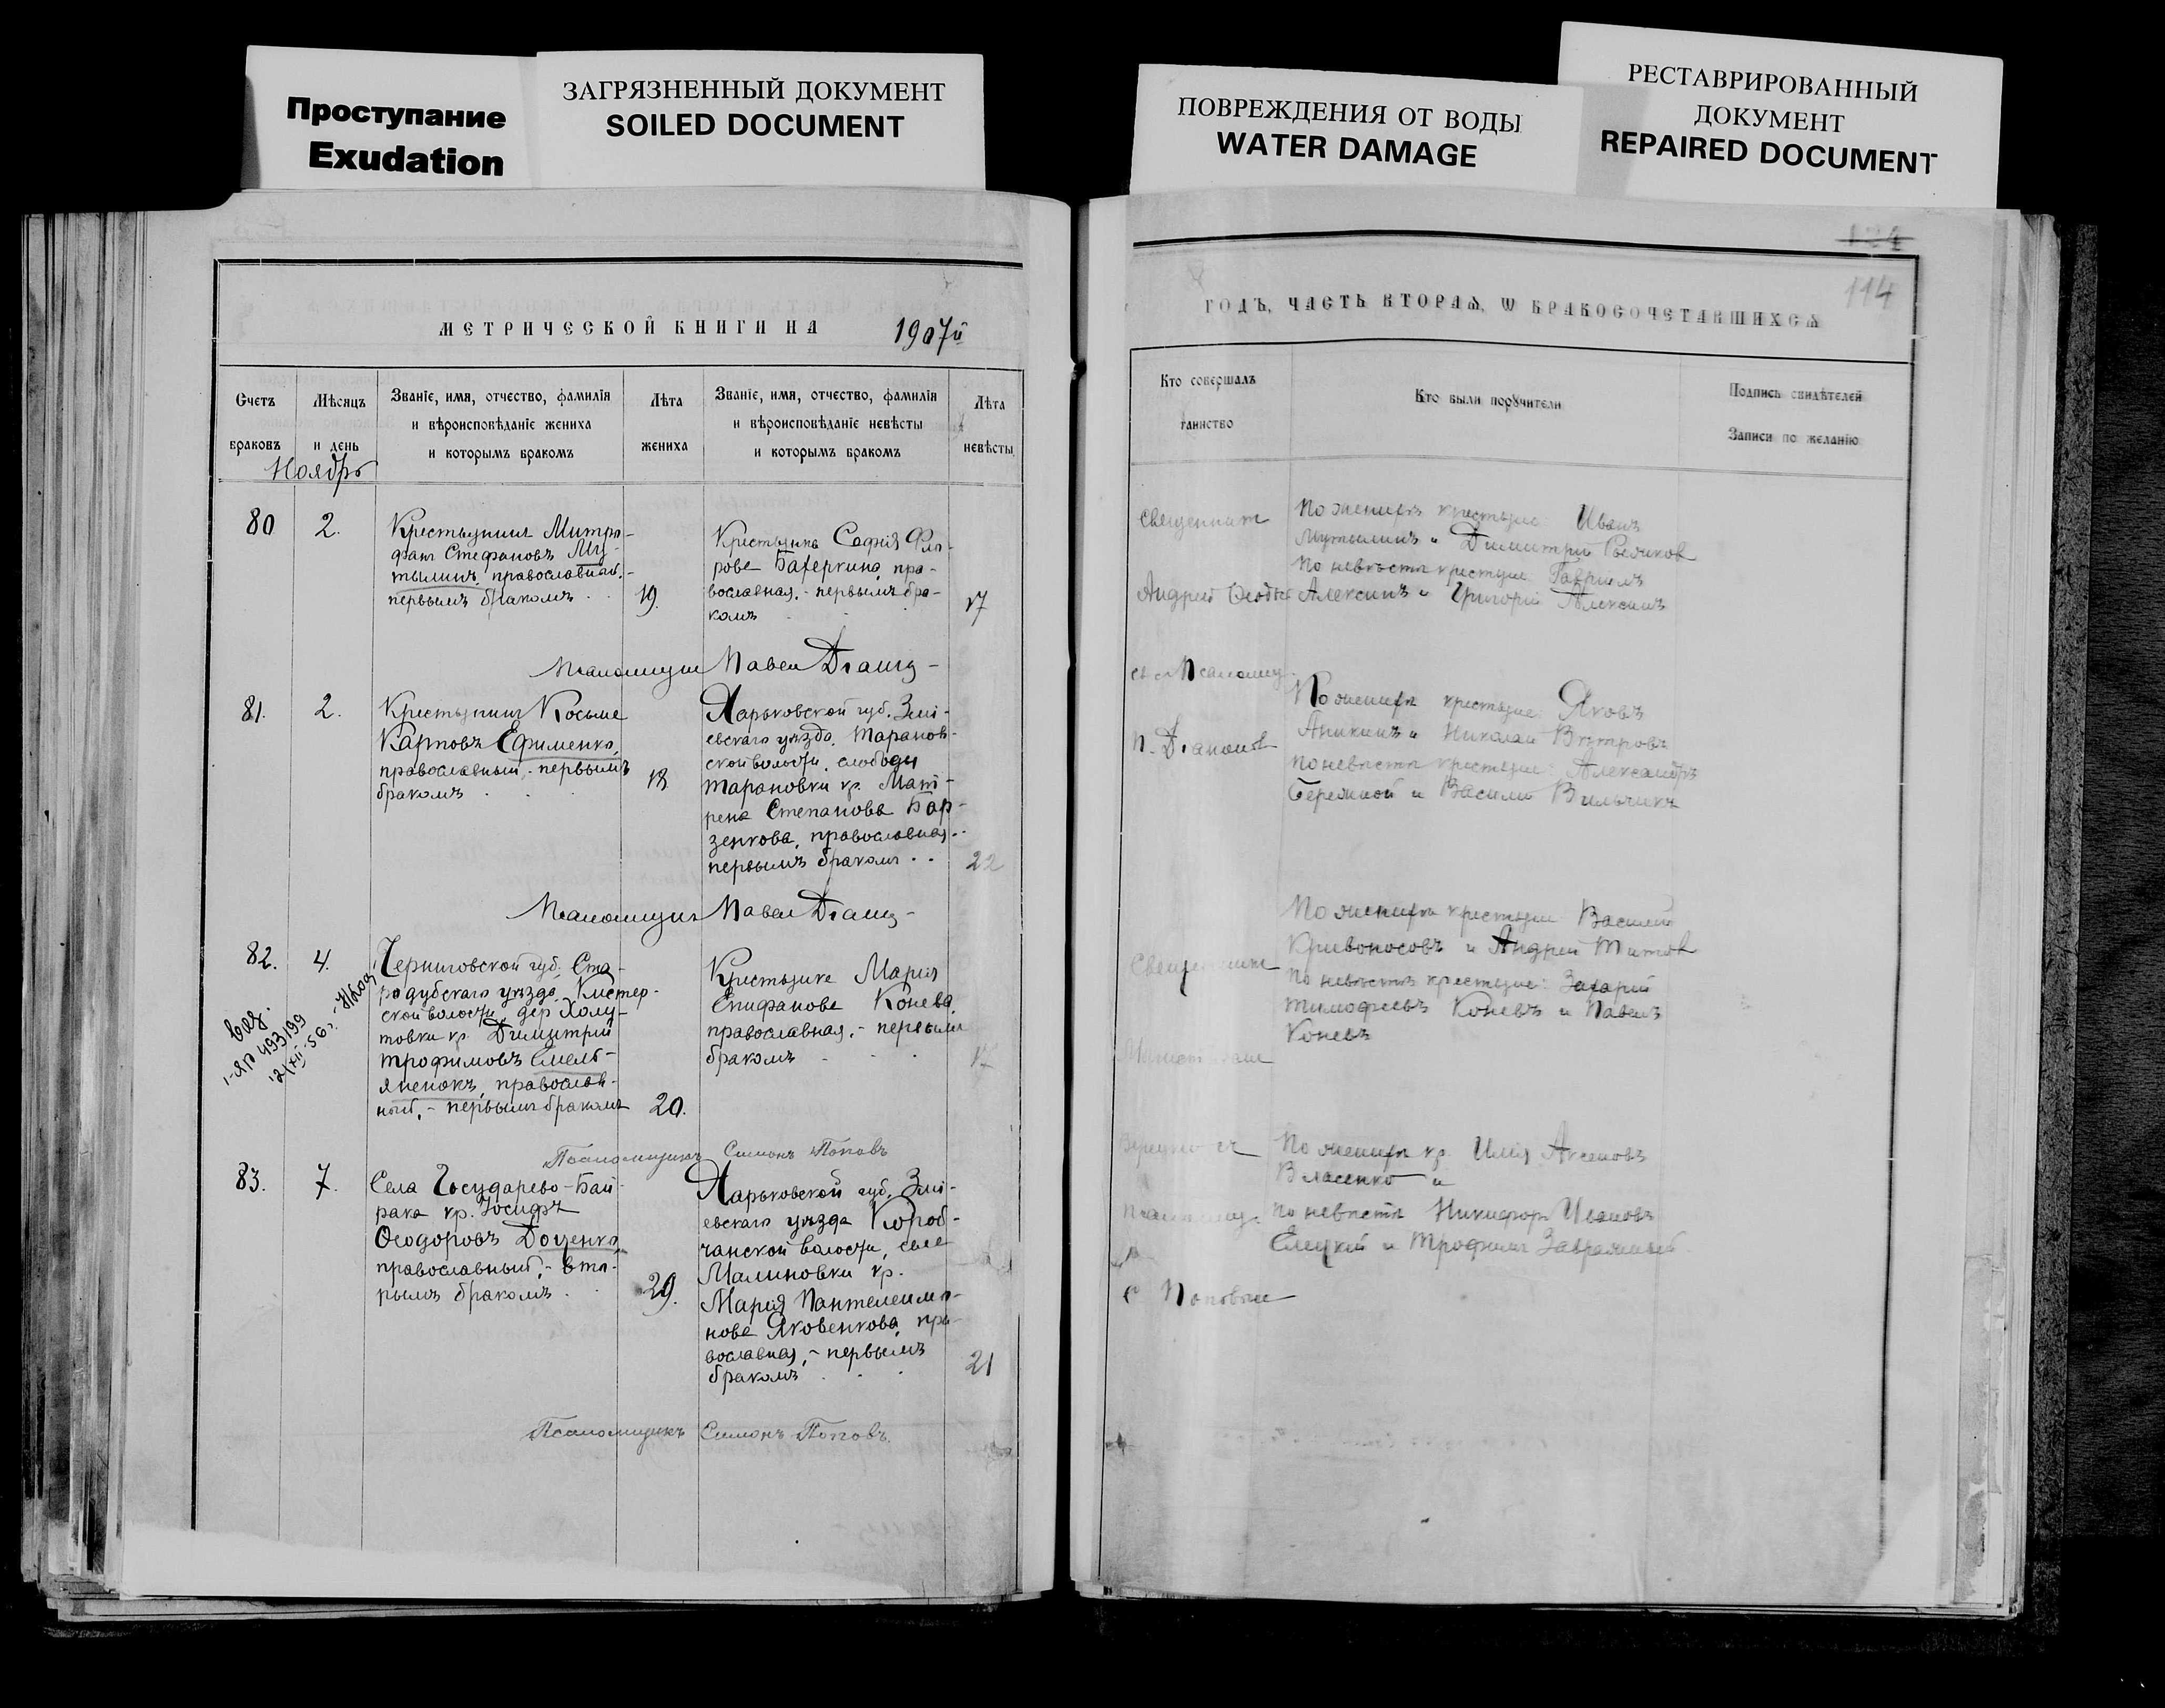 Проступание
Exudation
ЗАГРЯЗНЕННЫЙ ДОКУМЕНТ
SOILED DOCUMENT
ПОВРЕЖДЕНИЯ ОТ ВОДЫ
WATER DAMAGE
РЕСТАВРИРОВАННЫЙ
ДОКУМЕНТ
REPAIRED DOCUMENT
МЕТРИЧЕСКОЙ КНИГИ НА 1907й
Счетъ
браковъ
Мѣсяцъ
и день
Ноябрь
Званіе, имя, отчество, фамилія
и вѣроисповѣданіе жениха
и которымъ бракомъ
Лѣта
жениха
Званіе, имя, отчество, фамилія
и вѣроисповѣданіе невѣсты
и которымъ бракомъ
Лѣта
невѣсты
80
2.
Крестьянинъ Митро-
фанъ Стефановъ Му-
тылинъ, православный,-
первымъ бракомъ
19.
Крестьянка Софія Фло-
рова, пра-
вославная,- первымъ бра-
комъ
17
Псаломщикъ Павелъ
81.
2.
Крестьянинъ Косьма
Карповъ Ефименко,
православный,- первымъ
бракомъ
18
Харьковской губ. Змі-
евскаго уѣзда, Таранов-
ской волости, слободы
Тарановки кр. Мат-
рена Степанова Бар-
зенкова, православная,-
первымъ бракомъ
22
Псаломщикъ Павелъ
82.
4.
Черниговской губ. Ста-
родубскаго уѣзда, Кистер-
ской волости, дер. Холу-
товки кр. Димитрій
Трофимовъ Емель-
яненокъ, православ-
ный,- первымъ бракомъ
20.
Крестьянка Марія
Епифанова Конева,
православная,- первымъ
бракомъ
Псаломщикъ Симонъ Поповъ
83.
7.
Села Государево-Бай-
рака кр. Іосифъ
Ѳеодоровъ Доценко,
православный,- вто-
рымъ бракомъ
29.
Харьковской губ. Змі-
евскаго уѣзда Короб-
чанской волости, села
Малиновки кр.
Марія Пантелеимо-
нова Яковенкова, пра-
вославная,- первымъ
бракомъ
21
Псаломщикъ Симонъ Поповъ.
124
114
ГОДЪ, ЧАСТЬ ВТОРАЯ, Ѡ БРАКОСОЧЕТАВШИХСЯ
Кто совершалъ
таинство
Кто были поручители
Подпись свидѣтелей
Записи по желанію
Священникъ
Андрей
Псаломщ.
По женихѣ крестьяне: Иванъ
Мутылинъ и Димитрій
По невѣстѣ крестьяне: Гавріилъ
Алексинъ и Григорій Алексинъ
По женихѣ крестьяне: Яковъ
Аникинъ и Николай Вѣтровъ
По невѣстѣ крестьяне: Александръ
Бережной и Василій
Священникъ
По женихѣ крестьяне Василій
Кривоносовъ и Андрей Титовъ
По невѣстѣ крестьяне: Захарій
Тимофеевъ Коневъ и Павелъ
Коневъ
По женихѣ кр. Илія Аксеновъ
Власенко и
По невѣстѣ Никифоръ Ивановъ
Елецкій и Трофимъ
С Поповым